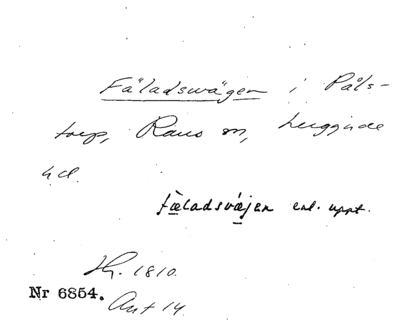 Fäladsvägen i Påls-
torp, Raus sn, Luggude
hd.
fæladsvæjen enl. uppt.
Hr. 1810.
Nr 6854.
Ant 14.